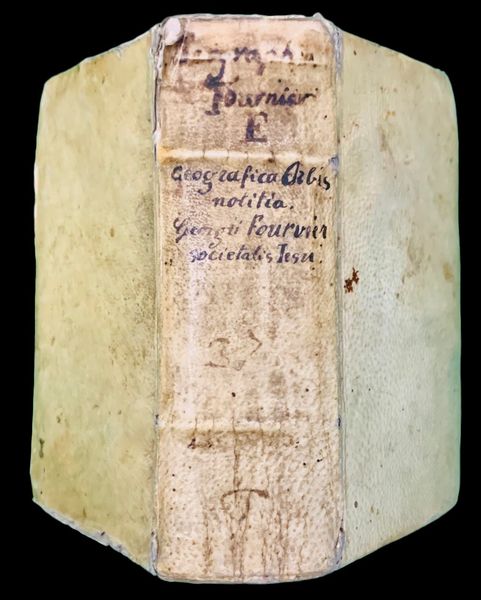 Fournier
E
Geografica Orbis
notitia.
Georgii Fournier
societatis Iesu